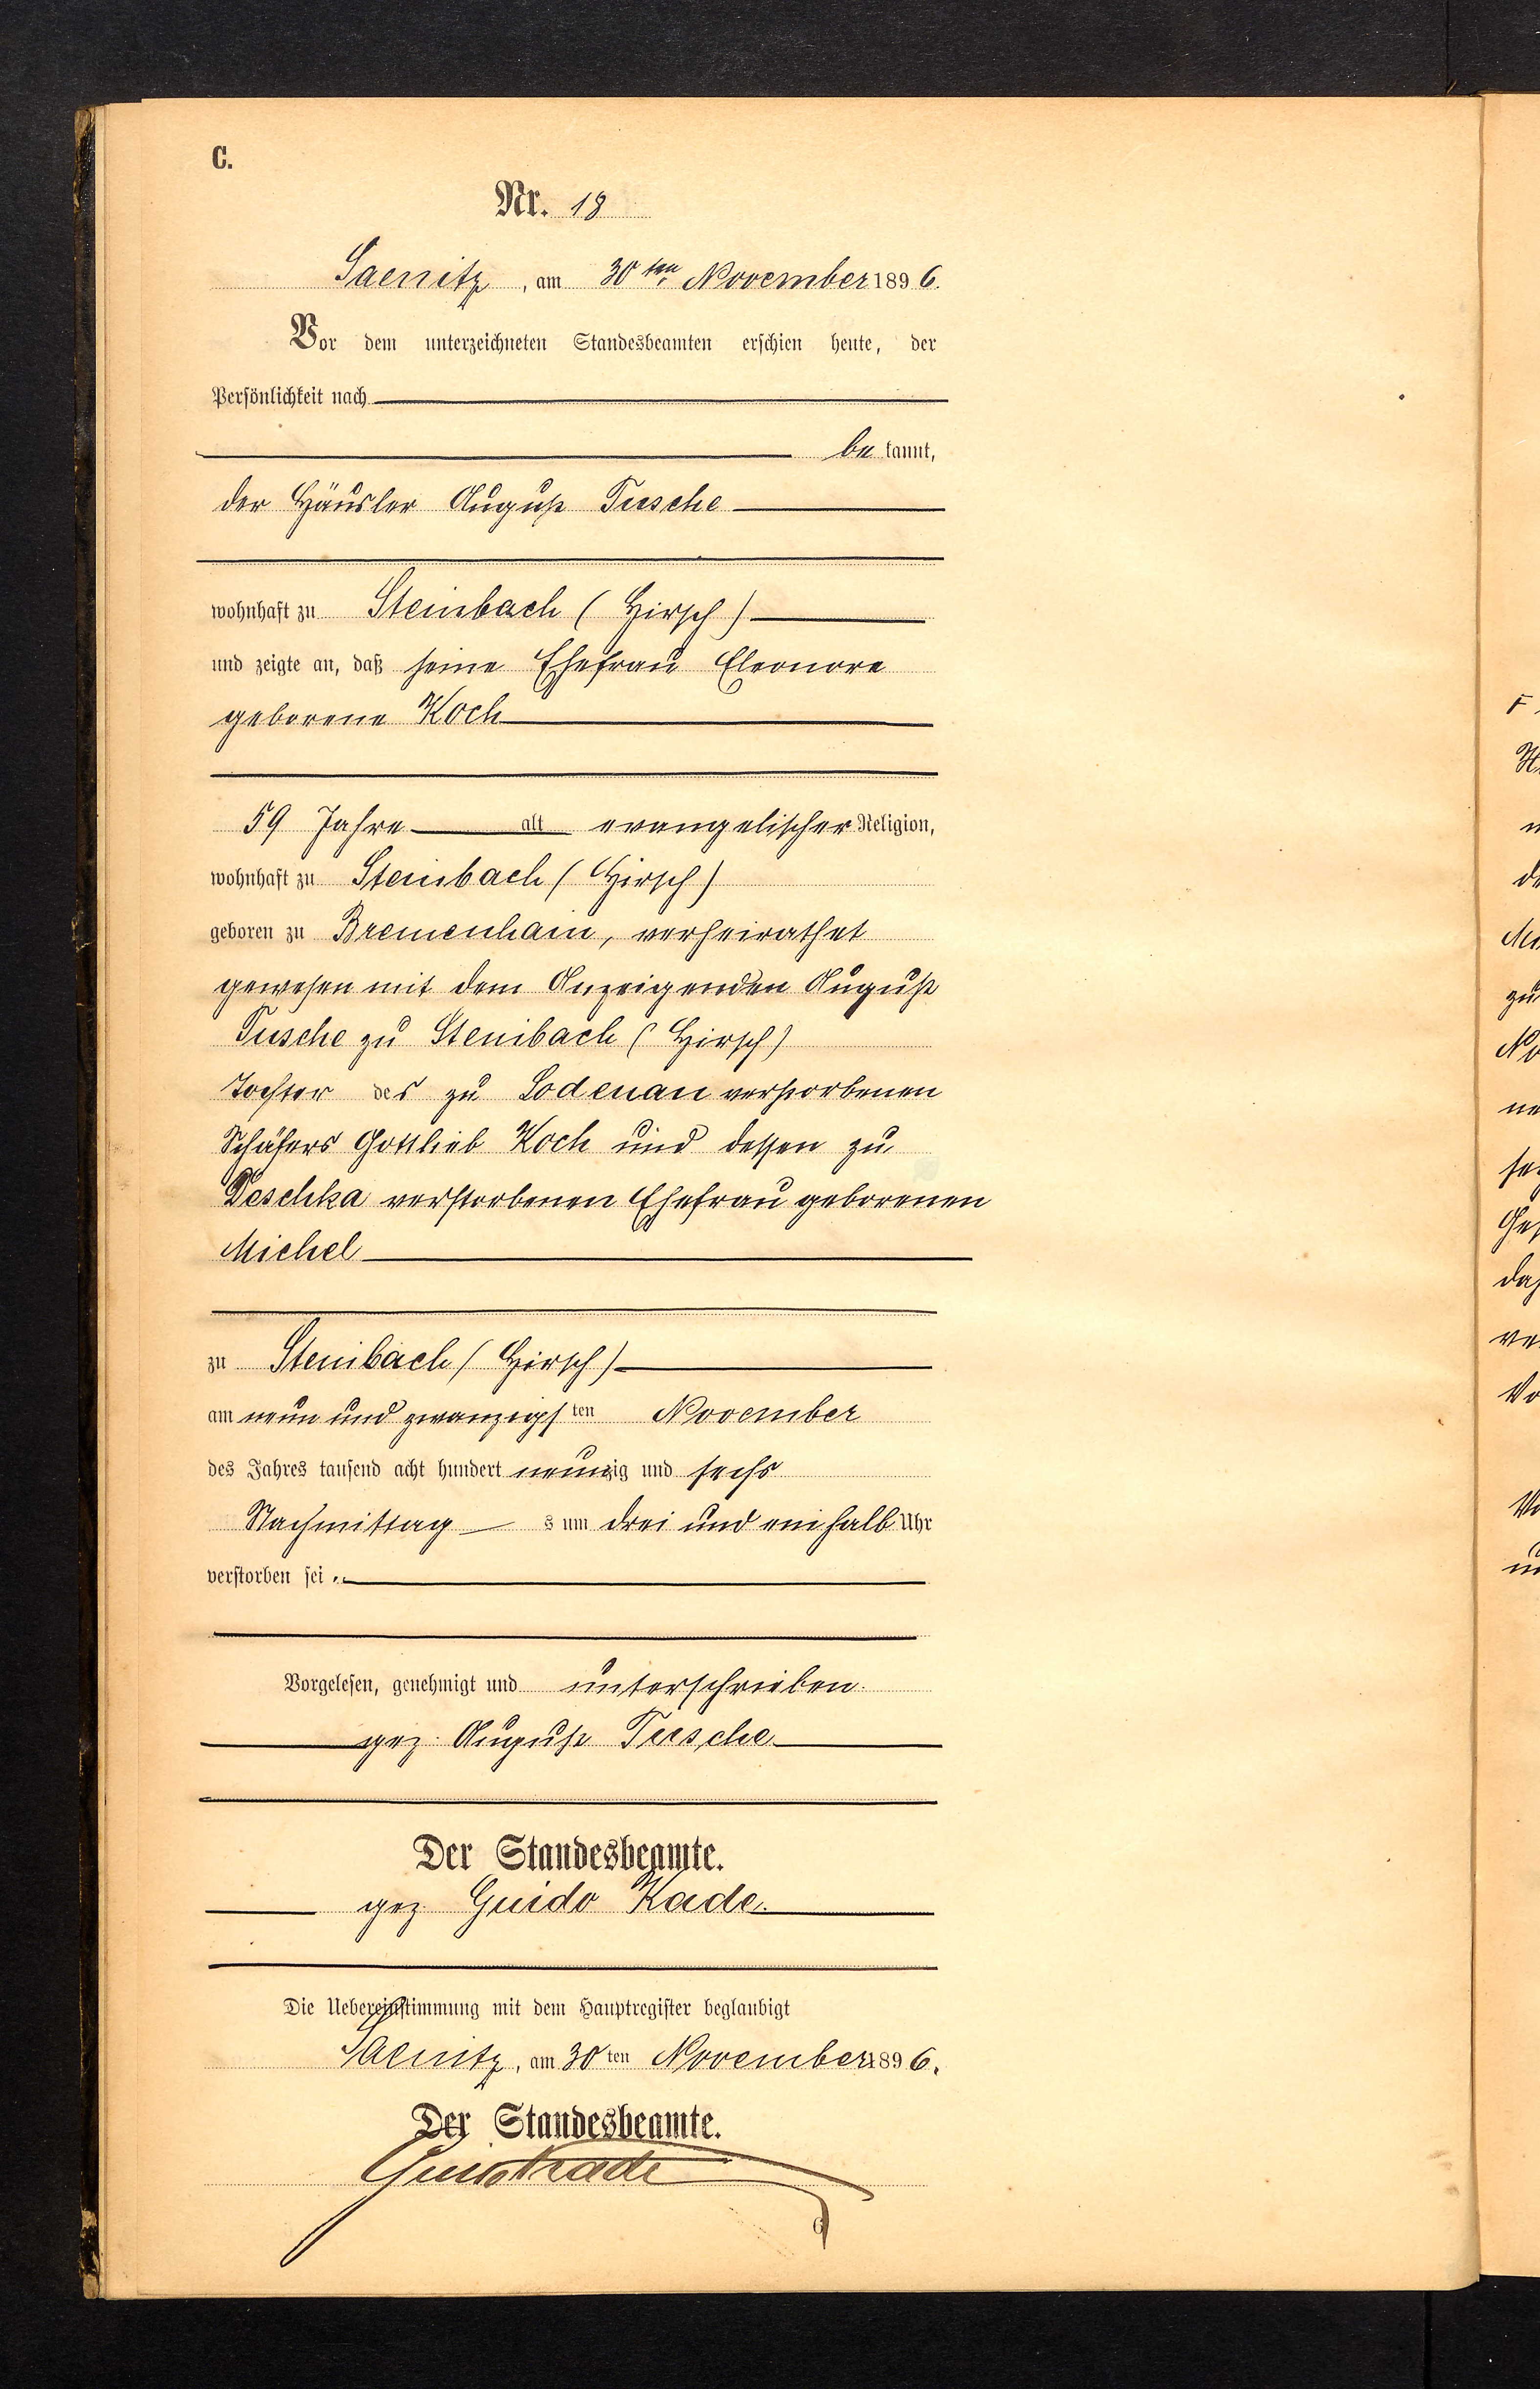 C.
Nr. 18
Saenitz, am 30ten November 1896.
Vor dem unterzeichneten Standesbeamten erschien heute, der
Persönlichkeit nach
be kannt,
der Häusler August Tusche
wohnhaft zu Steinbach (Hirsch)
und zeigte an, daß seine Ehefrau Eleonore
geborene Koch
59 Jahre alt evangelischer Religion,
wohnhaft zu Steinbach (Hirsch)
geboren zu Bremenhain, verheirathet
gewesen mit dem Anzeigenden August
Tusche zu Steinbach (Hirsch)
Tochter des zu Lodenau verstorbenen
Schäfers Gottlieb Koch und dessen zu
Deschka verstorbenen Ehefrau geborenen
Michel
zu Steinbach (Hirsch)
am neun und zwanzigsten November
des Jahres tausend acht hundert neunzig und sechs
Nachmittags um drei und einhalb Uhr
verstorben sei.
Vorgelesen, genehmigt und unterschrieben.
gez. August Tusche
Der Standesbeamte.
gez. Guido Kade.
Die Uebereinstimmung mit dem Hauptregister beglaubigt
Saenitz, am 30ten November 1896.
Der Standesbeamte.
Guido Kade